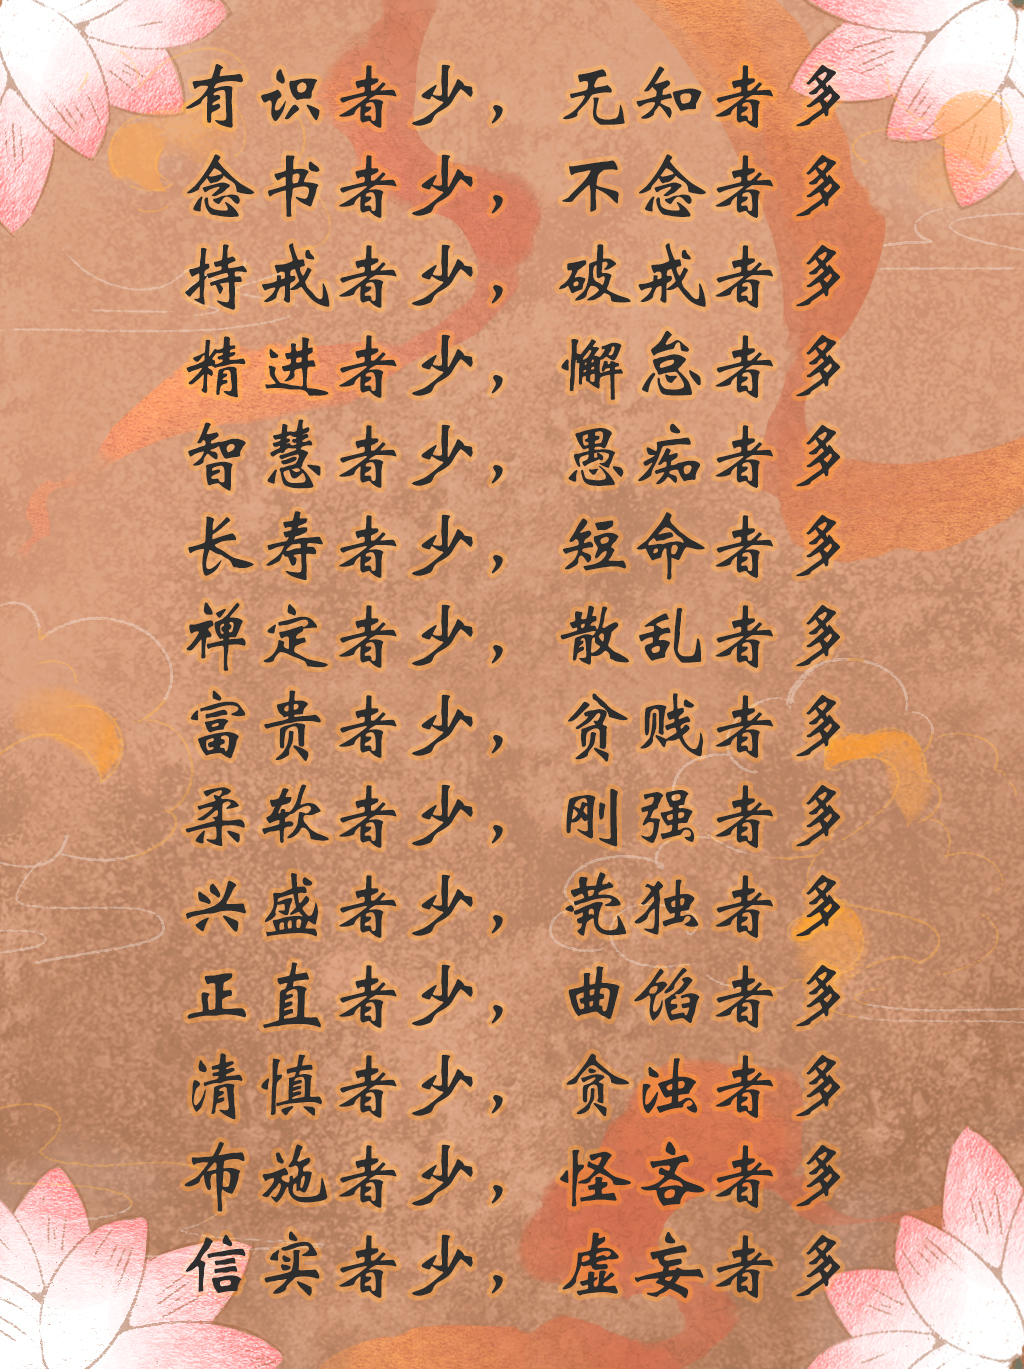 有识者少，无知者多
念书者少，不念者多
持戒者少，破戒者多
精进者少，懈怠者多
智慧者少，愚痴者多
长寿者少，短命者多
禅定者少，散乱者多
富贵者少，贫贱者多
柔软者少，刚强者多
兴盛者少，茕独者多
正直者少，曲馅者多
清慎者少，贪浊者多
布施者少，怪吝者多
信实者少，虚妄者多